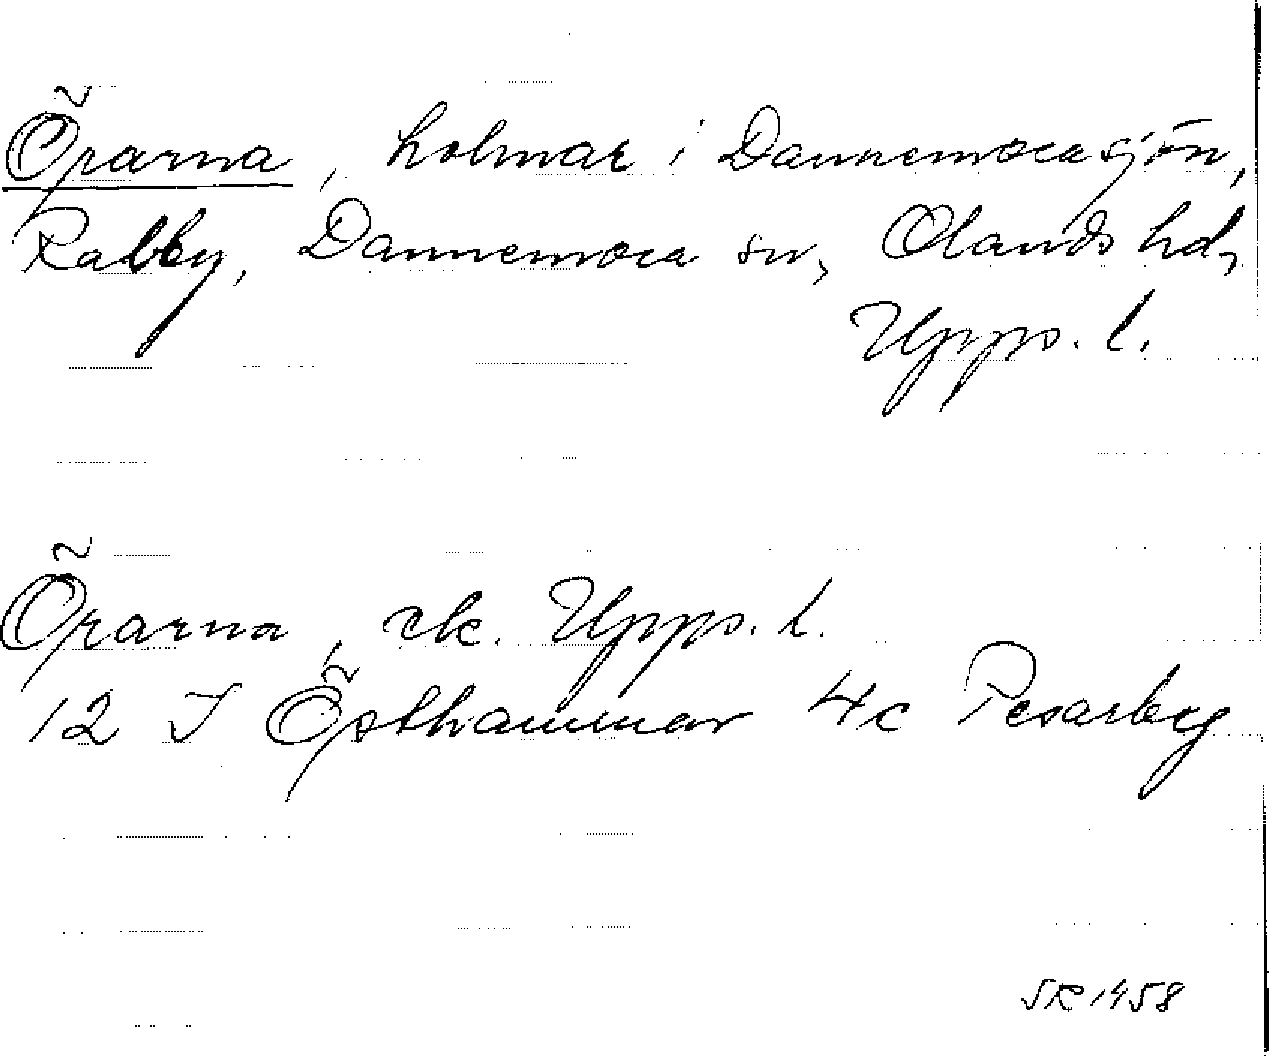 Öparna, holmar i Dannemorasjön,
Rabby, Dannemora sn, Olands hd,
Upps. l.
Öparna, ek. Upps. l.
12 I Östhammar 4c Pesarby
SR 1958